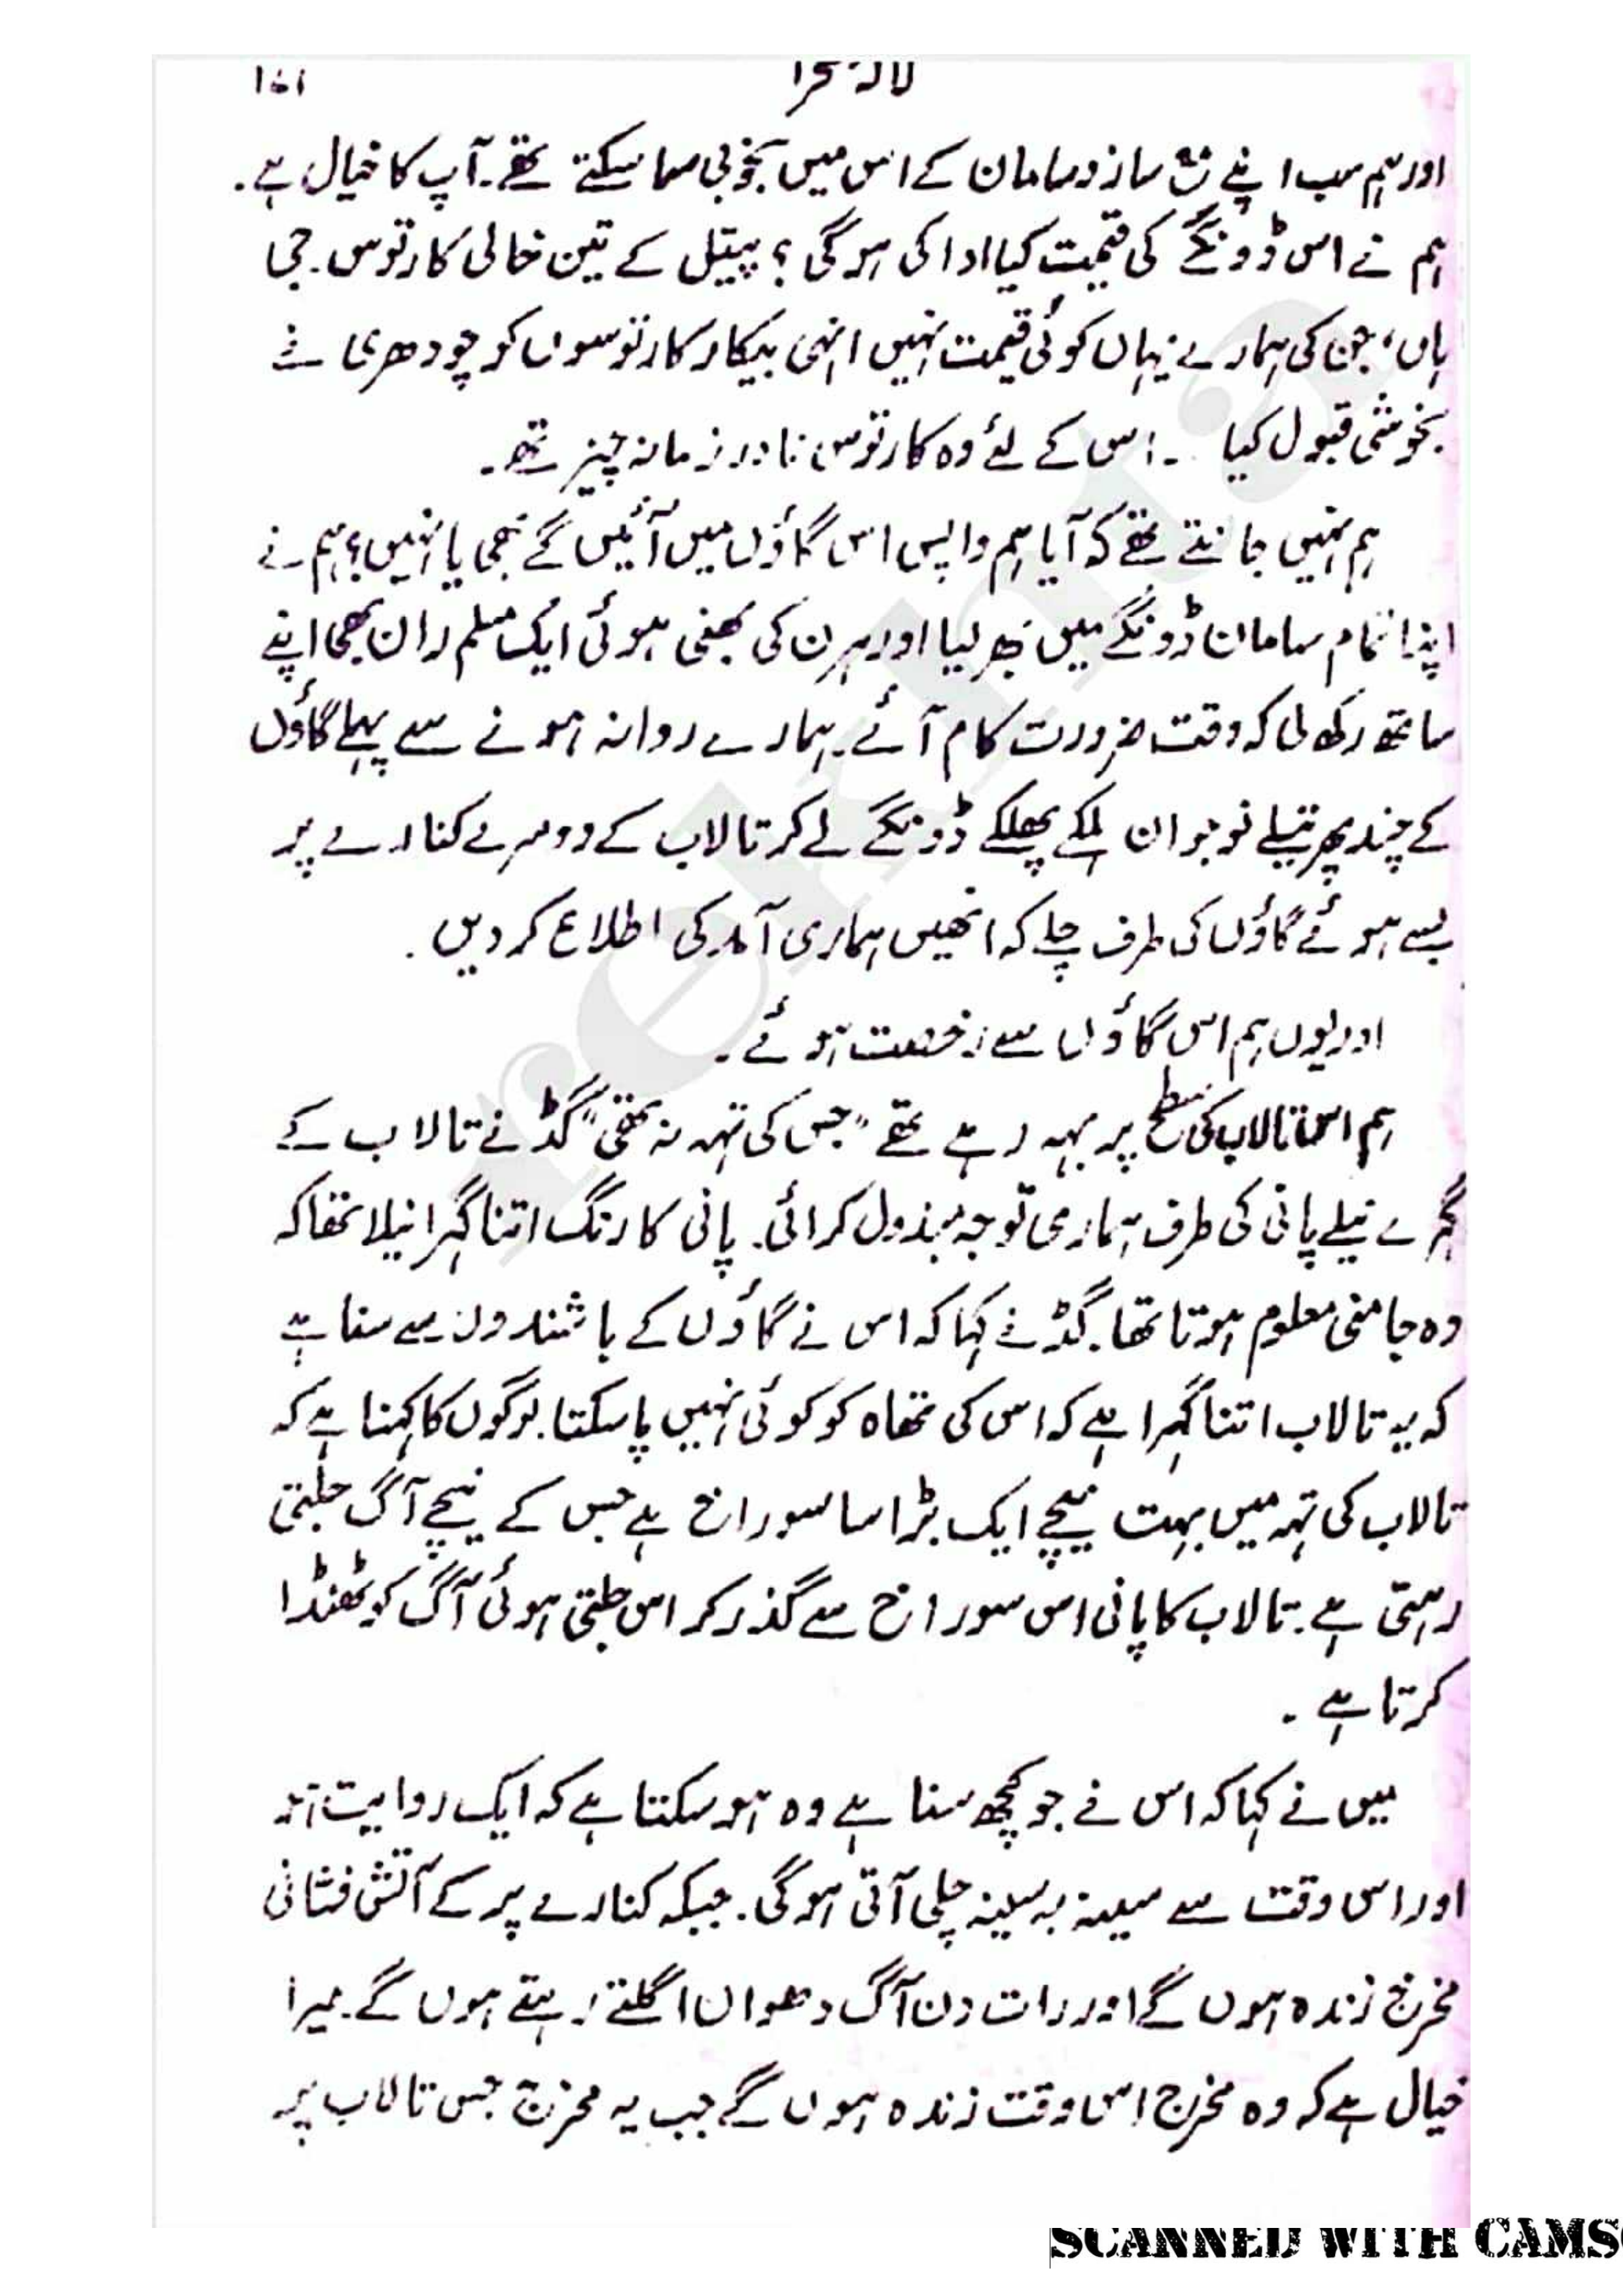 لالۂ صحرا
اور ہم سب اپنے مع ساز و سامان کے اس میں بخوبی سما سکتے تھے۔ آپ کا خیال ہے۔
ہم نے اس ڈونگے کی قیمت کیا ادا کی ہوگی؟ پیتل کے تین خالی کارتوس۔ جی
ہاں، جن کی ہمارے یہاں کوئی قیمت نہیں انہی بیکار کارتوسوں کو چودھری نے
بخوشی قبول کیا ۔ اس کے لئے وہ کارتوس نادر زمانہ چیز تھے۔
ہم نہیں جانتے تھے کہ آیا ہم واپس اس گاؤں میں آئیں گے بھی یا نہیں؟ ہم نے
اپنا تمام سامان ڈونگے میں بھر لیا اور ہرن کی بھنی ہوئی ایک مسلم ران بھی اپنے
ساتھ رکھ لی کہ وقت ضرورت کام آئے۔ ہمارے روانہ ہونے سے پہلے گاؤں
کے چند پھرتیلے نوجوان ہلکے پھلکے ڈونگے لے کر تالاب کے دوسرے کنارے پر
بسے ہوئے گاؤں کی طرف چلے کہ انھیں ہماری آمد کی اطلاع کر دیں۔
اور یوں ہم اس گاؤں سے رخصت ہوئے۔
ہم اس تالاب کی سطح پر بہہ رہے تھے "جس کی تہہ نہ تھی" گڈ نے تالاب کے
گہرے نیلے پانی کی طرف ہماری توجہ مبذول کرائی۔ پانی کا رنگ اتنا گہرا نیلا تھا کہ
وہ جامنی معلوم ہوتا تھا۔ گڈ نے کہا کہ اس نے گاؤں کے باشندوں سے سنا ہے
کہ یہ تالاب اتنا گہرا ہے کہ اس کی تھاہ کو کوئی نہیں پا سکتا۔ لوگوں کا کہنا ہے کہ
تالاب کی تہہ میں بہت نیچے ایک بڑا سا سوراخ ہے جس کے نیچے آگ جلتی
رہتی ہے۔ تالاب کا پانی اس سوراخ سے گذر کر اس جلتی ہوئی آگ کو ٹھنڈا
کرتا ہے۔
میں نے کہا کہ اس نے جو کچھ سنا ہے وہ ہو سکتا ہے کہ ایک روایت ہو
اور اس وقت سے سینہ بہ سینہ چلی آتی ہوگی۔ جبکہ کنارے پر کے آتش فشانی
مخرج زندہ ہوں گے اور رات دن آگ دھواں اگلتے رہتے ہوں گے۔ میرا
خیال ہے کہ وہ مخرج اس وقت زندہ ہوں گے جب یہ مخرج جس تالاب پر
SCANNED WITH CAMS